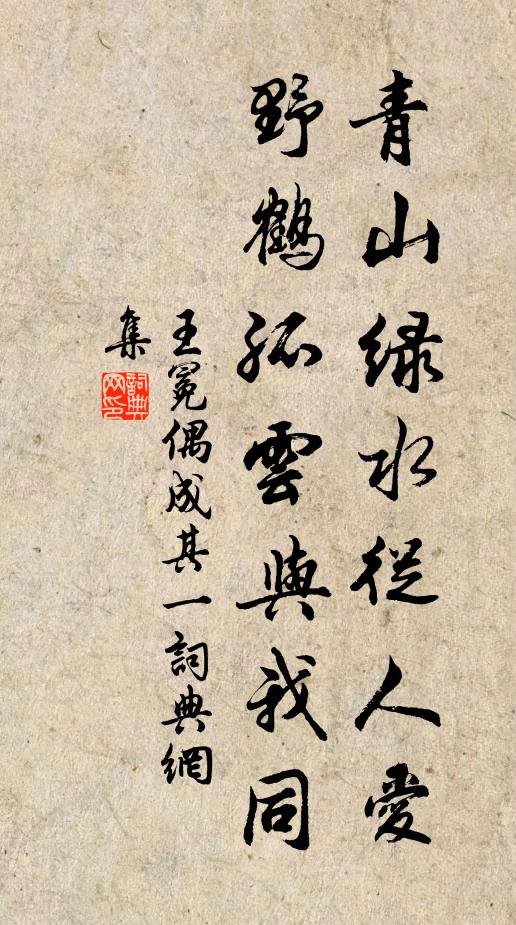 青山綠水從人愛
野鶴孤雲與我同
王冕偶成其一詞典網
集
詞典
网印